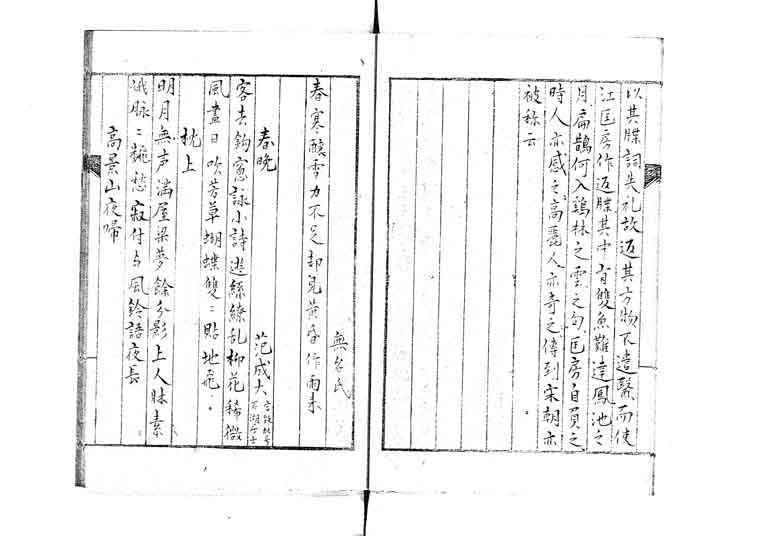 以其牒詞失礼故返其方物不遣醫而使
江匡房作返牒其中有雙魚難達鳳池之
月扁鵲何入鶏林之雲之句匡房自負之
時人亦感之高麗人亦奇之傳到宋朝亦
被称云
無名氏
春寒釀雪力不足却見黄昏作雨来
春晩
范成大
客去鈎窓詠小詩遊絲繚乱柳花稀微
風盡日吹芳草蝴蝶雙〻貼地飛
枕上
明月無声満屋梁夢餘分影上人牀素
娥脉〻愁寂付与風鈴語夜長
高景山夜歸